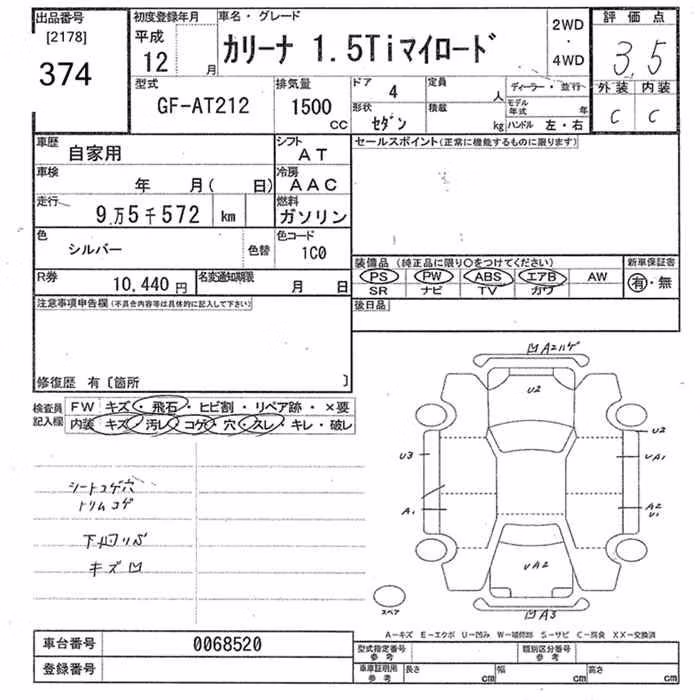 出品番号 初度登録年月 車名・グレード 評価点
[2178] 平成 カリーナ 1.5Tiマイロード 2WD
374 12 月 ・ 3.5
4WD
型式 排気量 ドア 4 定員 人 ディーラー・並行 外装 内装
GF-AT212 1500 CC 形状 セダン 積載 kg モデル年式 年 C C
ハンドル 左・右
車歴 自家用 シフト AT セールスポイント(正常に機能するものに限ります)
車検 年 月( 日) 冷房 AAC
走行 9万5千572 km 燃料 ガソリン
色 シルバー 色替 色コード 1C0
装備品(純正品に限り○をつけてください) 新車保証書
R券 10,440円 名変通知期限 月 日 PS PW ABS エアB AW 有・無
SR ナビ TV カワ
注意事項申告欄(不具合内容等は具体的に記入して下さい) 後日品
修復歴 有〔箇所 〕
検査員記入欄 FW キズ・飛石・ヒビ割・リペア跡・×要
内装 キズ・汚レ・コゲ・穴・スレ・キレ・破レ
凹A2ハゲ
U2
U2
U3 UA1
シートコゲ穴
トリムコゲ
A1 A2
U1
キズ凹
UA2
スペア
凹A3
A-キズ E-エクボ U-凹み W-補修跡 S-サビ C-腐食 XX-交換済
車台番号 0068520 型式指定番号 参考 類別区分番号 参考
登録番号 車車証明用 参考 長さ cm 幅 cm 高さ cm